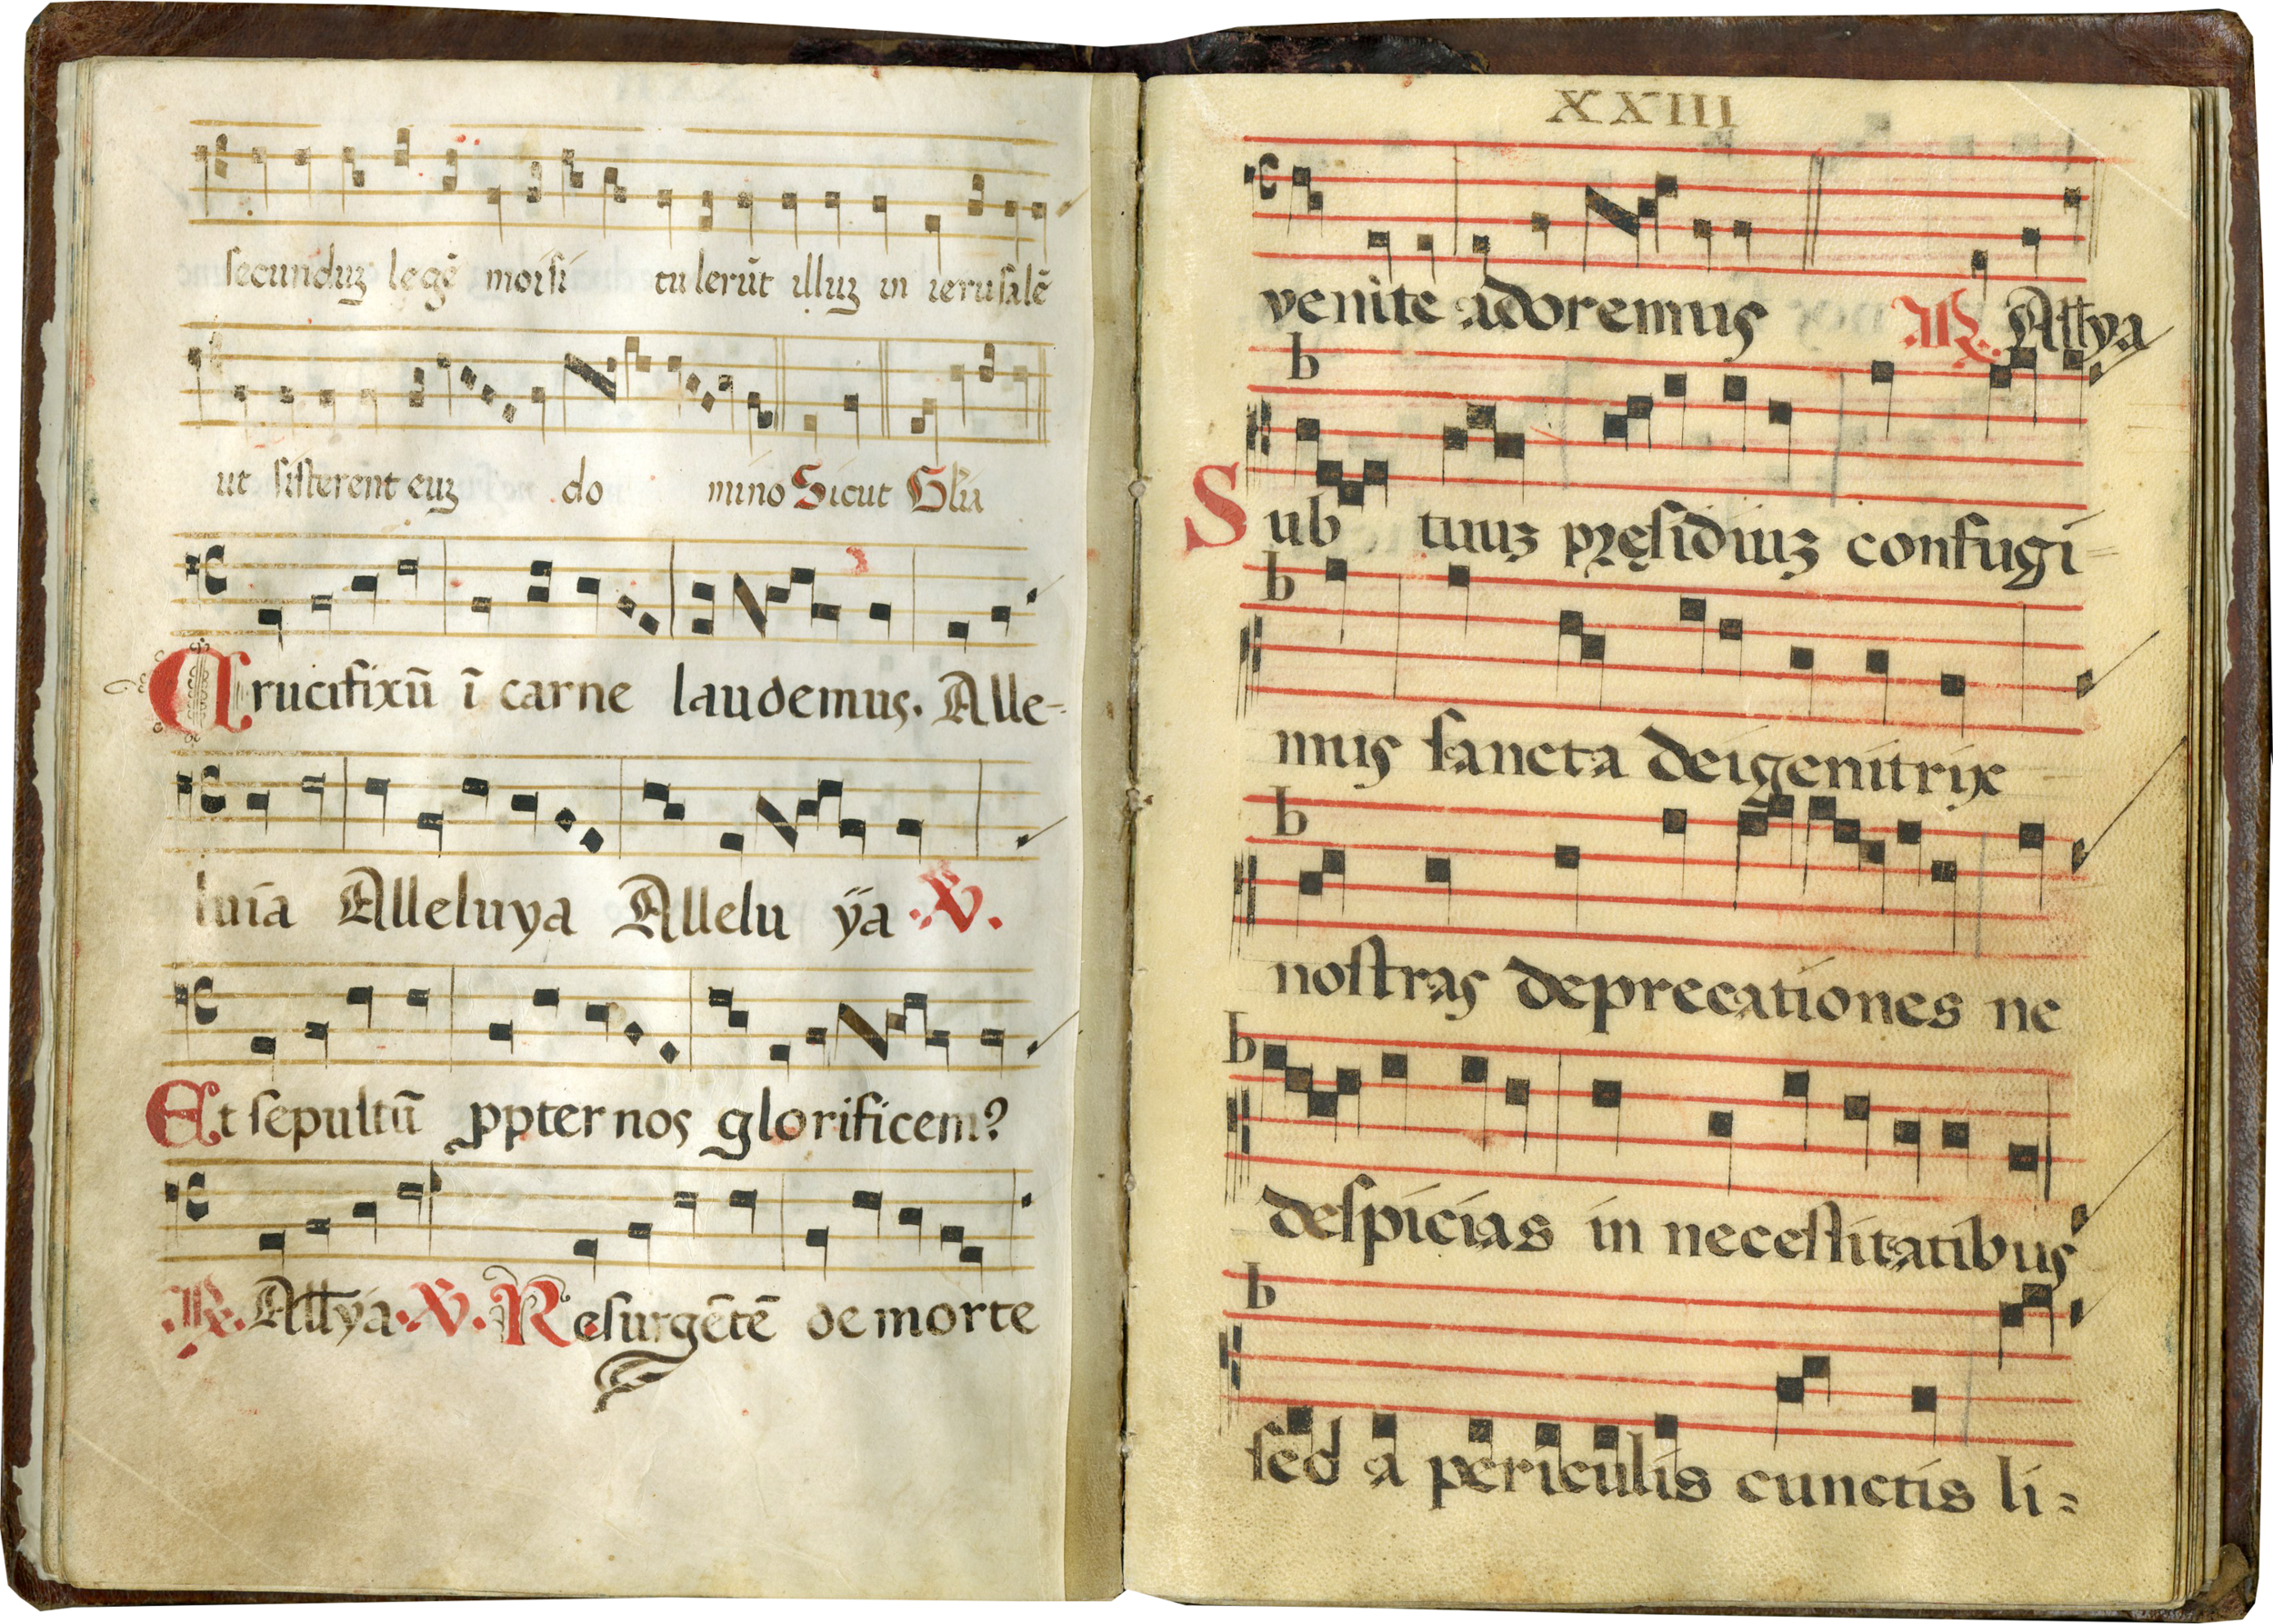 secunduȝ legē moisi tulerūt illuȝ in ierusalē
ut sisterent euȝ do mino Sicut Glia
Crucifixū ī carne laudemus. Alle-
luia Alleluya Allelu ÿa .℣.
Et sepultū ꝓpter nos glorificem?
.℟. Allya .℣. Resurgētē de morte
XXIII
venite adoremus .℟. Allya
Sub tuuȝ pręsidiuȝ confugi=
mus sancta dei genitrix
nostras deprecationes ne
despicias in necessitatibus
sed a periculis cunctis li=